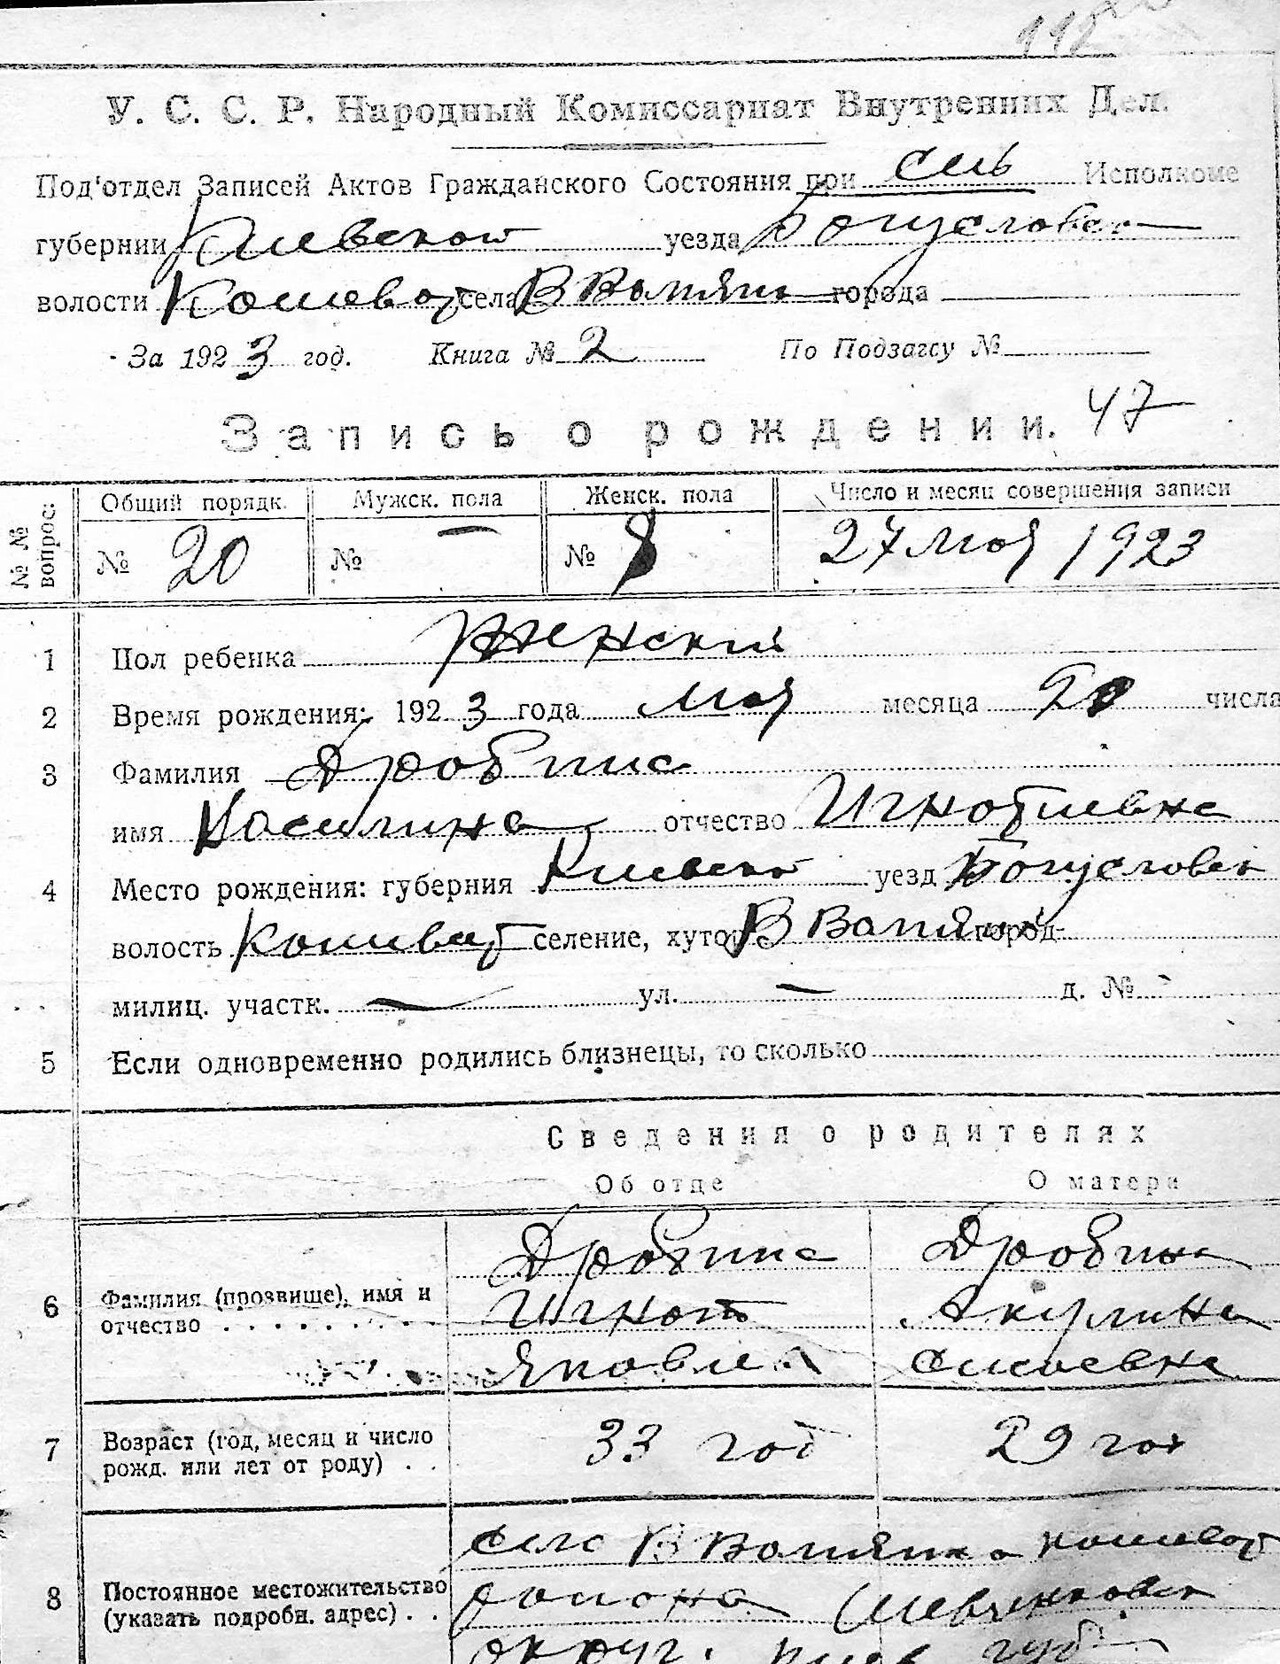 118
У. С. С. Р. Народный Комиссариат Внутренних Дел.
Под'отдел Записей Актов Гражданского Состояния при сель Исполкоме
губернии Киевской уезда Богуславск
волости Кошеват села В Вотяг города
За 1923 год. Книга № 2 По Подзагсу №
Запись о рождении. 47
№ № вопрос. Общий порядк. Мужск. пола Женск. пола Число и месяц совершения записи
№ 20 № — № 8 27 мая 1923
1 Пол ребенка Женский
2 Время рождения: 1923 года мая месяца 20 числа
3 Фамилия Дробина
имя Василина отчество Игнатиевна
4 Место рождения: губерния Киевско уезд Богуславск
волость Кошеват селение, хутор город
милиц. участк. — ул. — д. №
5 Если одновременно родились близнецы, то сколько
Сведения о родителях
Об отце О матери
6 Фамилия (прозвище), имя и отчество . . . . . . . . . .
Дробина Дробина
Игнат Акулина
Яковлев Сисоевна
7 Возраст (год, месяц и число рожд. или лет от роду) . .
33 год 29 год
8 Постоянное местожительство (указать подробн. адрес) . .
село Кошеват
района Шевченковск
округ. Киев губ.